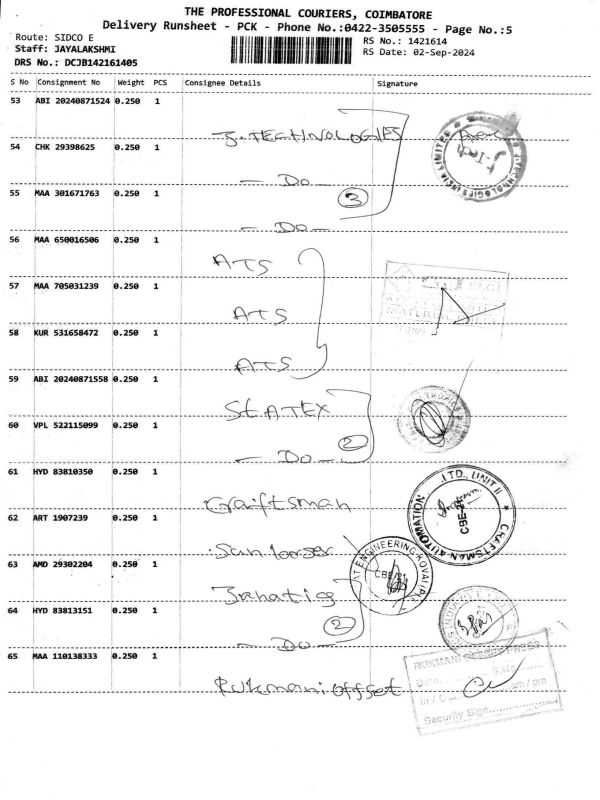 THE PROFESSIONAL COURIERS, COIMBATORE
Delivery Runsheet - PCK - Phone No.:0422-3505555 - Page No.:5
Route: SIDCO E
RS No.: 1421614
Staff: JAYALAKSHMI
RS Date: 02-Sep-2024
DRS No.: DCJB142161405
S No Consignment No Weight PCS Consignee Details Signature
53 ABI 20240871524 0.250 1
J. TECHNOLOGIES
54 CHK 29398625 0.250 1
- Do -
3
55 MAA 301671763 0.250 1
- Do -
56 MAA 650016506 0.250 1
ATS
57 MAA 705031239 0.250 1
ELGI
ATS
58 KUR 531658472 0.250 1
ATS
59 ABI 20240871558 0.250 1
SEATEX
60 VPL 522115099 0.250 1
2
- Do -
61 HYD 83810350 0.250 1
CRAFTSMAN AUTOMATION LTD., UNIT II
CBE-21
Craftsman
62 ART 1907239 0.250 1
63 AMD 29302204 0.250 1
AT ENGINEERING KOVAI (P)
CBE-21
64 HYD 83813151 0.250 1
2
- Do -
65 MAA 110138333 0.250 1
RUKMANI OFFSET PRESS
Date
S.No
Rukmani offset
In / Out am / pm
Security Sign